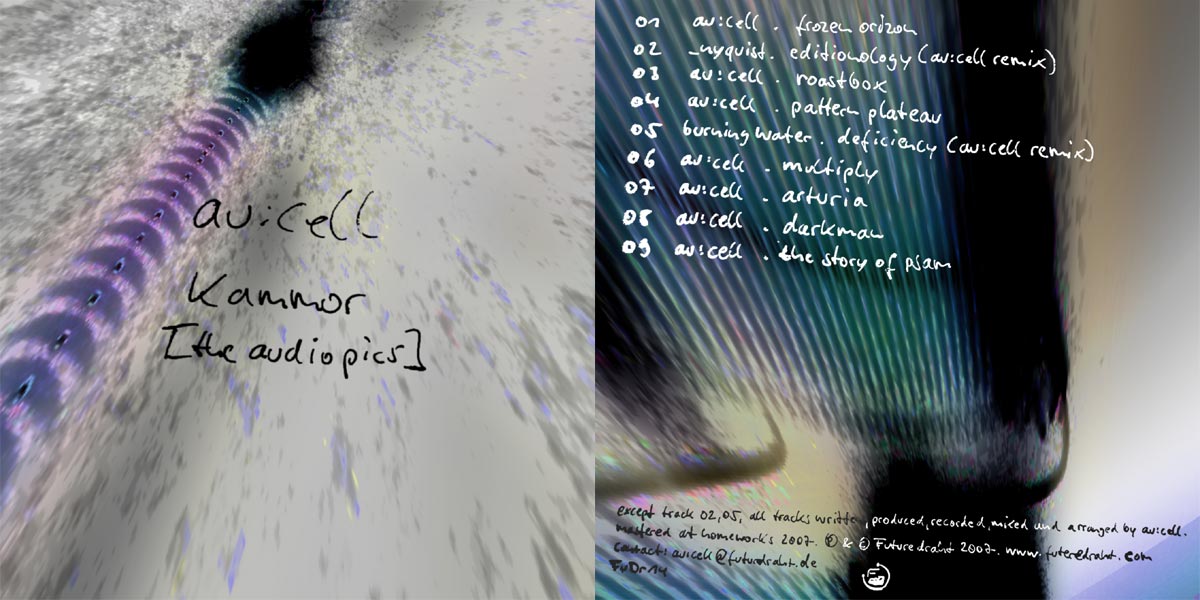 av:cell
Kammor
[the audiopics]
01 av:cell . frozen orizon
02 _nyquist. editionology (av:cell remix)
03 av:cell . roastbox
04 av:cell . pattern plateau
05 burning water . deficiency (av:cell remix)
06 av:cell . multiply
07 av:cell . arturia
08 av:cell . darkman
09 av:cell . the story of psam
except track 02, 05, all tracks written, produced, recorded, mixed and arranged by av:cell.
mastered at homeworks 2007. ℗ & © Futuredraht 2007. www.futuredraht.com
Contact: avcell@futuredraht.de
FuDr14